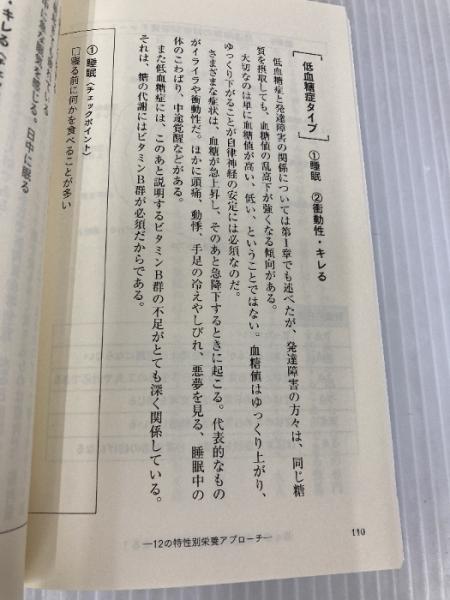 低血糖症タイプ ①睡眠 ②衝動性・キレる
低血糖症と発達障害の関係については第1章でも述べたが、発達障害の方々は、同じ糖
質を摂取しても、血糖値の乱高下が強くなる傾向がある。
大切なのは単に血糖値が高い、低い、ということではない。血糖値はゆっくり上がり、
ゆっくり下がることが自律神経の安定には必須なのだ。
さまざまな症状は、血糖が急上昇し、そのあと急降下するときに起こる。代表的なもの
がイライラや衝動性だ。ほかに頭痛、動悸、手足の冷えやしびれ、悪夢を見る、睡眠中の
体のこわばり、中途覚醒などがある。
また低血糖症には、このあと説明するビタミンB群の不足がとても深く関係している。
それは、糖の代謝にはビタミンB群が必須だからである。
①睡眠〈チェックポイント〉
□寝る前に何かを食べることが多い
110
—12の特性別栄養アプローチ—
眠気を感じる。日中に眠る
・キレる〈チェ